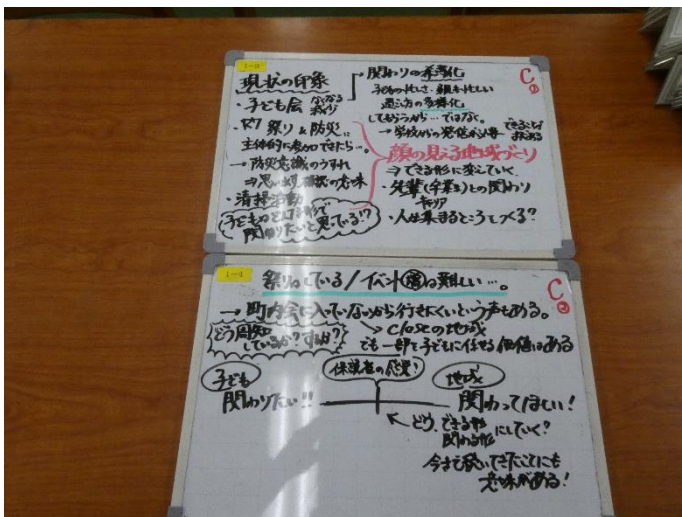 現状の印象
・子ども会 なくなる
・R7 祭り & 防災に
主体的に参加できたら…。
→ 防災意識のうすれ
・清掃活動
子どもはどんな形で
関わりたいと思っている!?
関わりの希薄化
子どもの忙しさ・親も忙しい
過ごし方の多様化
してもらうから…ではなく。
→ 学校からの発信が必要
顔の見える地域づくり
⇒ できる形に変えていく
・先輩(卒業生)との関わり
キャリア
・人が集まるところをつくる?
C
①
祭りはしている/イベント
は難しい…。
C
②
→ 町内会に入っていないから行きにくいという声もある。
どう周知
しているか?するか?
closeの地域
でも一部を子どもに任せる価値はある
保護者の
子ども
関わりたい!!
地域
関わってほしい!
どう、できる形
関わる形
にしていく?
今まで続いてきたことにも
意味がある!